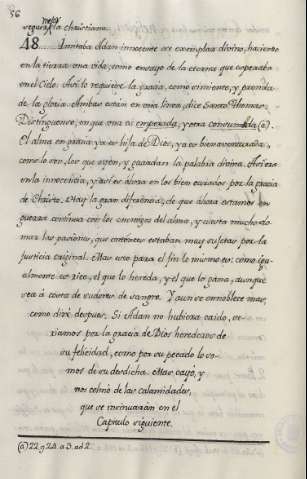 56
mejor
segura la christiana.
48. Imitaba Adan innocente ese exemplar divino, haciendo
en la tierra una vida, como ensayo de la eterna que esperaba
en el Cielo. Asi lo requiere la gracia, como simiente, y prenda
de la gloria. Ambas estan en una linea, dice Santo Thomas;
Distinguense, en que una es esperada, y otra consumada (a).
El alma en gracia ya es hija de Dios, ya es bienaventurada,
como lo son, los que oyen, y guardan la palabra divina. Asi era
en la innocencia, y asi es ahora en los bien curados por la gracia
de Christo. Hay la gran diferencia, de que ahora estamos en
guerra continua con los enemigos del alma, y cuesta mucho do-
mar las pasiones, que entonces estaban muy sujetas por la
justicia original. Mas esto para el fin lo mismo es: como igu-
almente es rico, el que lo hereda, y el que lo gana, aunque
sea á costa de sudores de sangre. Y aun se ennoblece mas,
como diré despues. Si Adan no hubiera caido, se-
riamos por la gracia de Dios herederos de
su felicidad, como por su pecado lo so-
mos de su desdicha. Mas cayó, y
nos cubrió de las calamidades,
que se insinuarán en el
Capitulo siguiente.
(a) 22. q 24. a 3. ad 2.